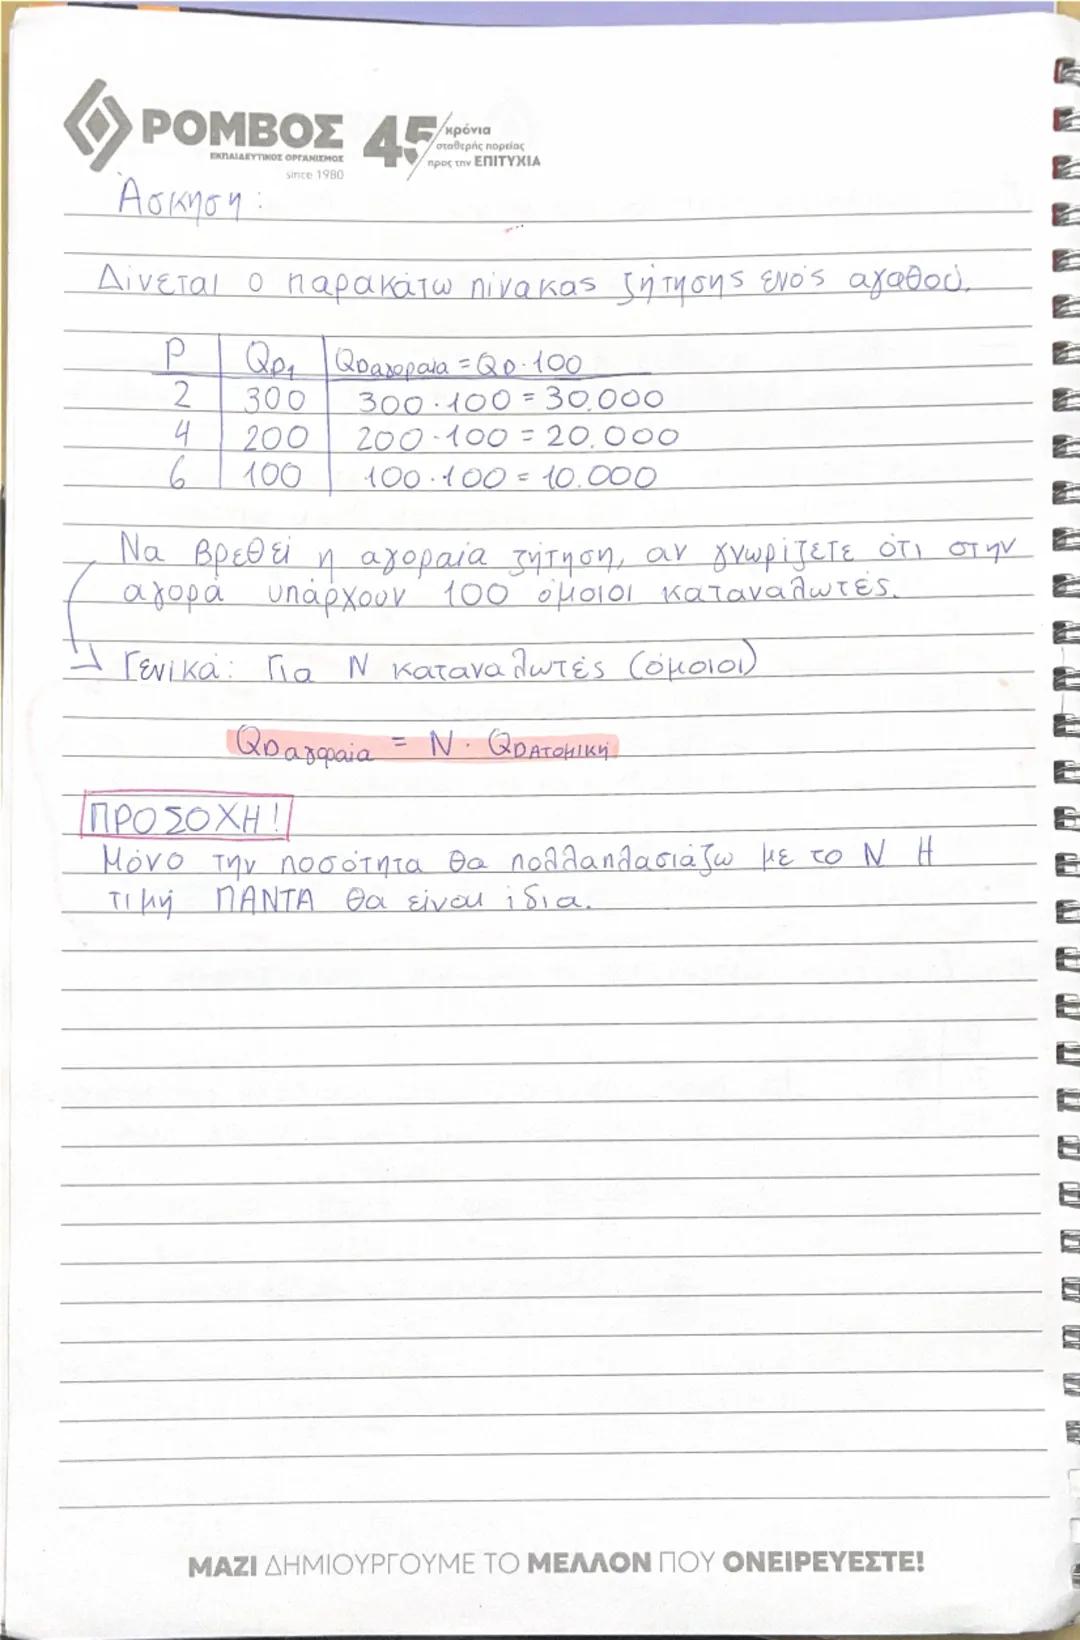 ΡΟΜΒΟΣ 45 χρόνια
σταθερής πορείας
ΕΚΠΑΙΔΕΥΤΙΚΟΣ ΟΡΓΑΝΙΣΜΟΣ προς την ΕΠΙΤΥΧΙΑ
since 1980
Άσκηση:
Δίνεται ο παρακάτω πίνακας ζήτησης ενός αγαθού.
P QD1 QDαγοραία = QD · 100
2 300 300 · 100 = 30.000
4 200 200 · 100 = 20.000
6 100 100 · 100 = 10.000
Να βρεθεί η αγοραία ζήτηση, αν γνωρίζετε ότι στην
αγορά υπάρχουν 100 όμοιοι καταναλωτές.
↳ Γενικά: Για Ν καταναλωτές (όμοιοι)
QDαγοραία = Ν · QDΑΤΟΜΙΚΗ
ΠΡΟΣΟΧΗ!
Μόνο την ποσότητα θα πολλαπλασιάζω με το Ν Η
τιμή ΠΑΝΤΑ θα είναι ίδια.
ΜΑΖΙ ΔΗΜΙΟΥΡΓΟΥΜΕ ΤΟ ΜΕΛΛΟΝ ΠΟΥ ΟΝΕΙΡΕΥΕΣΤΕ!